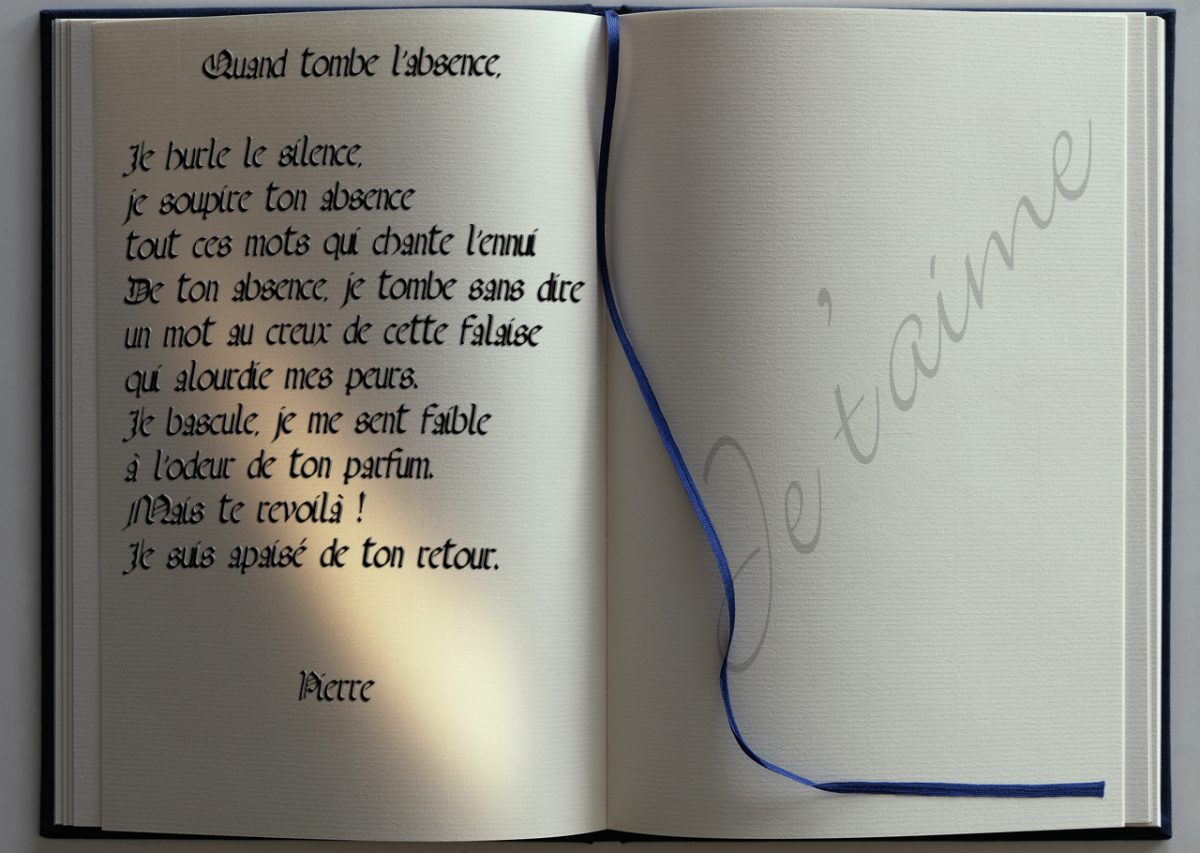 Quand tombe l'absence,
Je hurle le silence,
je soupire ton absence
tout ces mots qui chante l'ennui
De ton absence, je tombe sans dire
un mot au creux de cette falaise
qui alourdie mes peurs.
Je bascule, je me sent faible
à l'odeur de ton parfum.
Mais te revoilà !
Je suis apaisé de ton retour.
Pierre
Je t'aime